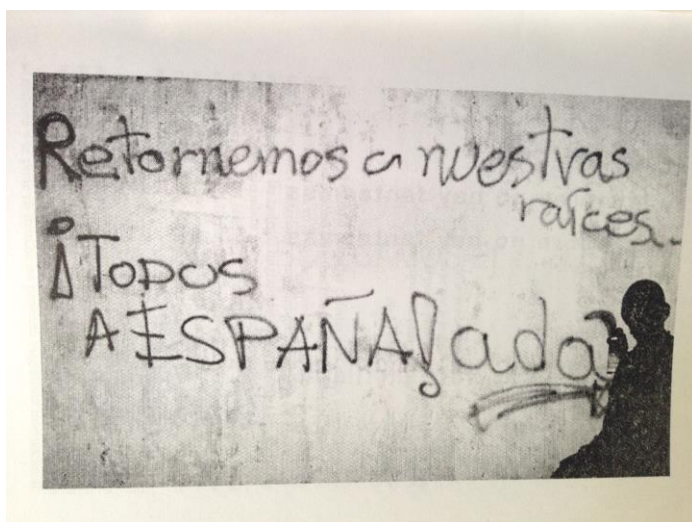 Retornemos a nuestras
raíces.
¡TODOS
A ESPAÑA! ada